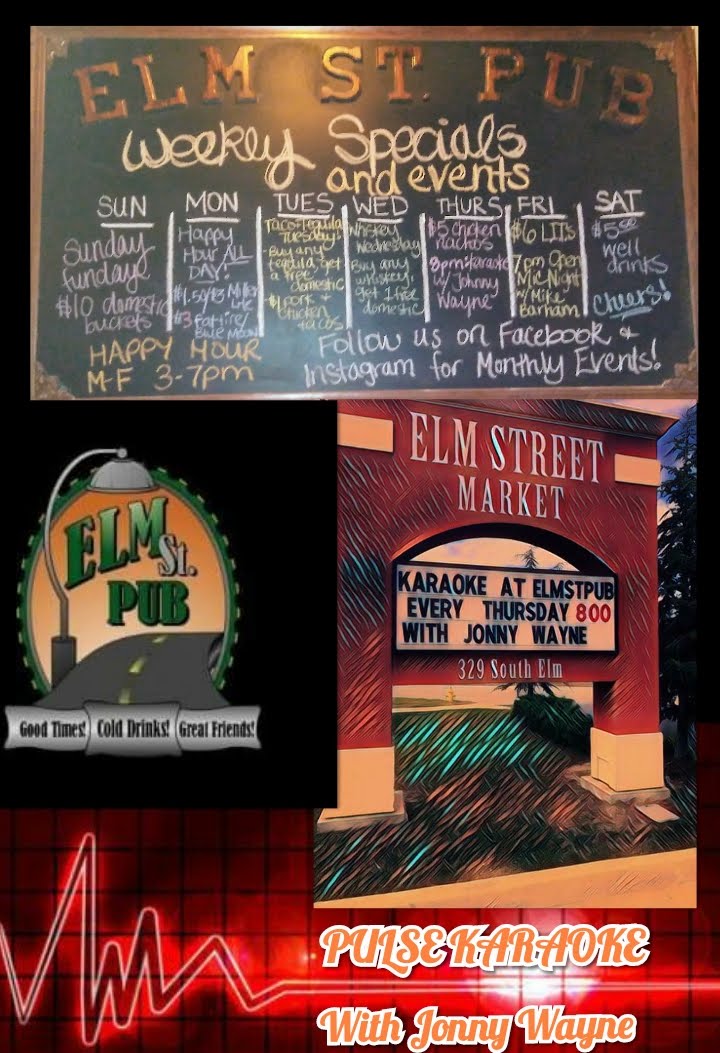 ELM ST. PUB
Weekly Specials
and events
SUN
Sunday
funday!
$10 domestic
buckets
MON
Happy
Hour ALL
DAY!
Miller
Lite
$3 Fat tire/
Blue Moon
TUES
Taco+Tequila
Tuesday!
Buy any
tequila, get
a free
domestic
$1 pork +
chicken
tacos
WED
Whiskey
Wednesday
Buy any
whiskey,
get 1 free
domestic
THURS
$5 chicken
nachos
8pm: Karaoke
w/ Johnny
Wayne
FRI
$6 LITs
7pm Open
Mic Night
w/ Mike
Barham
SAT
$5.00
well
drinks
Cheers!
HAPPY HOUR
M-F 3-7pm
Follow us on Facebook +
Instagram for Monthly Events!
ELM St.
PUB
Good Times! Cold Drinks! Great Friends!
ELM STREET
MARKET
KARAOKE AT ELMSTPUB
EVERY THURSDAY 800
WITH JONNY WAYNE
329 South Elm
PULSE KARAOKE
With Jonny Wayne